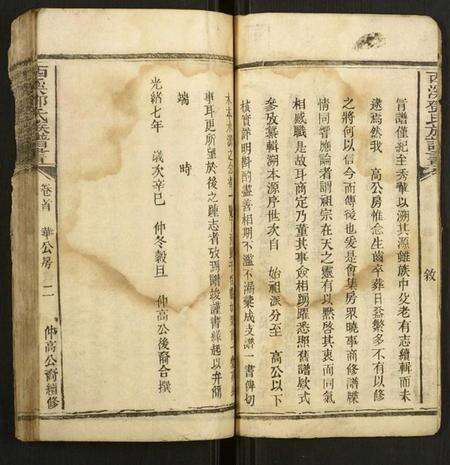 西溪鄧氏族譜書
敘
旨譜僅紀至秀華以溯其源雖族中父老有志續輯而未
逮焉然我 高公房惟念生齒卒葬日益繁多不有以修
之將何以信今而傳後也爰是會集房眾曉事商修譜牒
情同響應論者謂祖宗在天之靈有以默啓其衷而同氣
相感職是故耳商定乃董其事僉相踴躍悉照舊譜欵式
參攷纂輯溯本源序世次自 始祖派分至 高公以下
核實詳明斟酌盡善相期不濫不漏彙成支譜一書俾切
木本水源之
車耳更所望於後之踵志者攷碼剛竣謹書緣起以弁簡
端 時
光緒七年 歲次辛巳 仲冬穀旦 仲高公後裔合撰
西溪鄧氏族譜書
卷首 華公房 二 仲高公裔續修